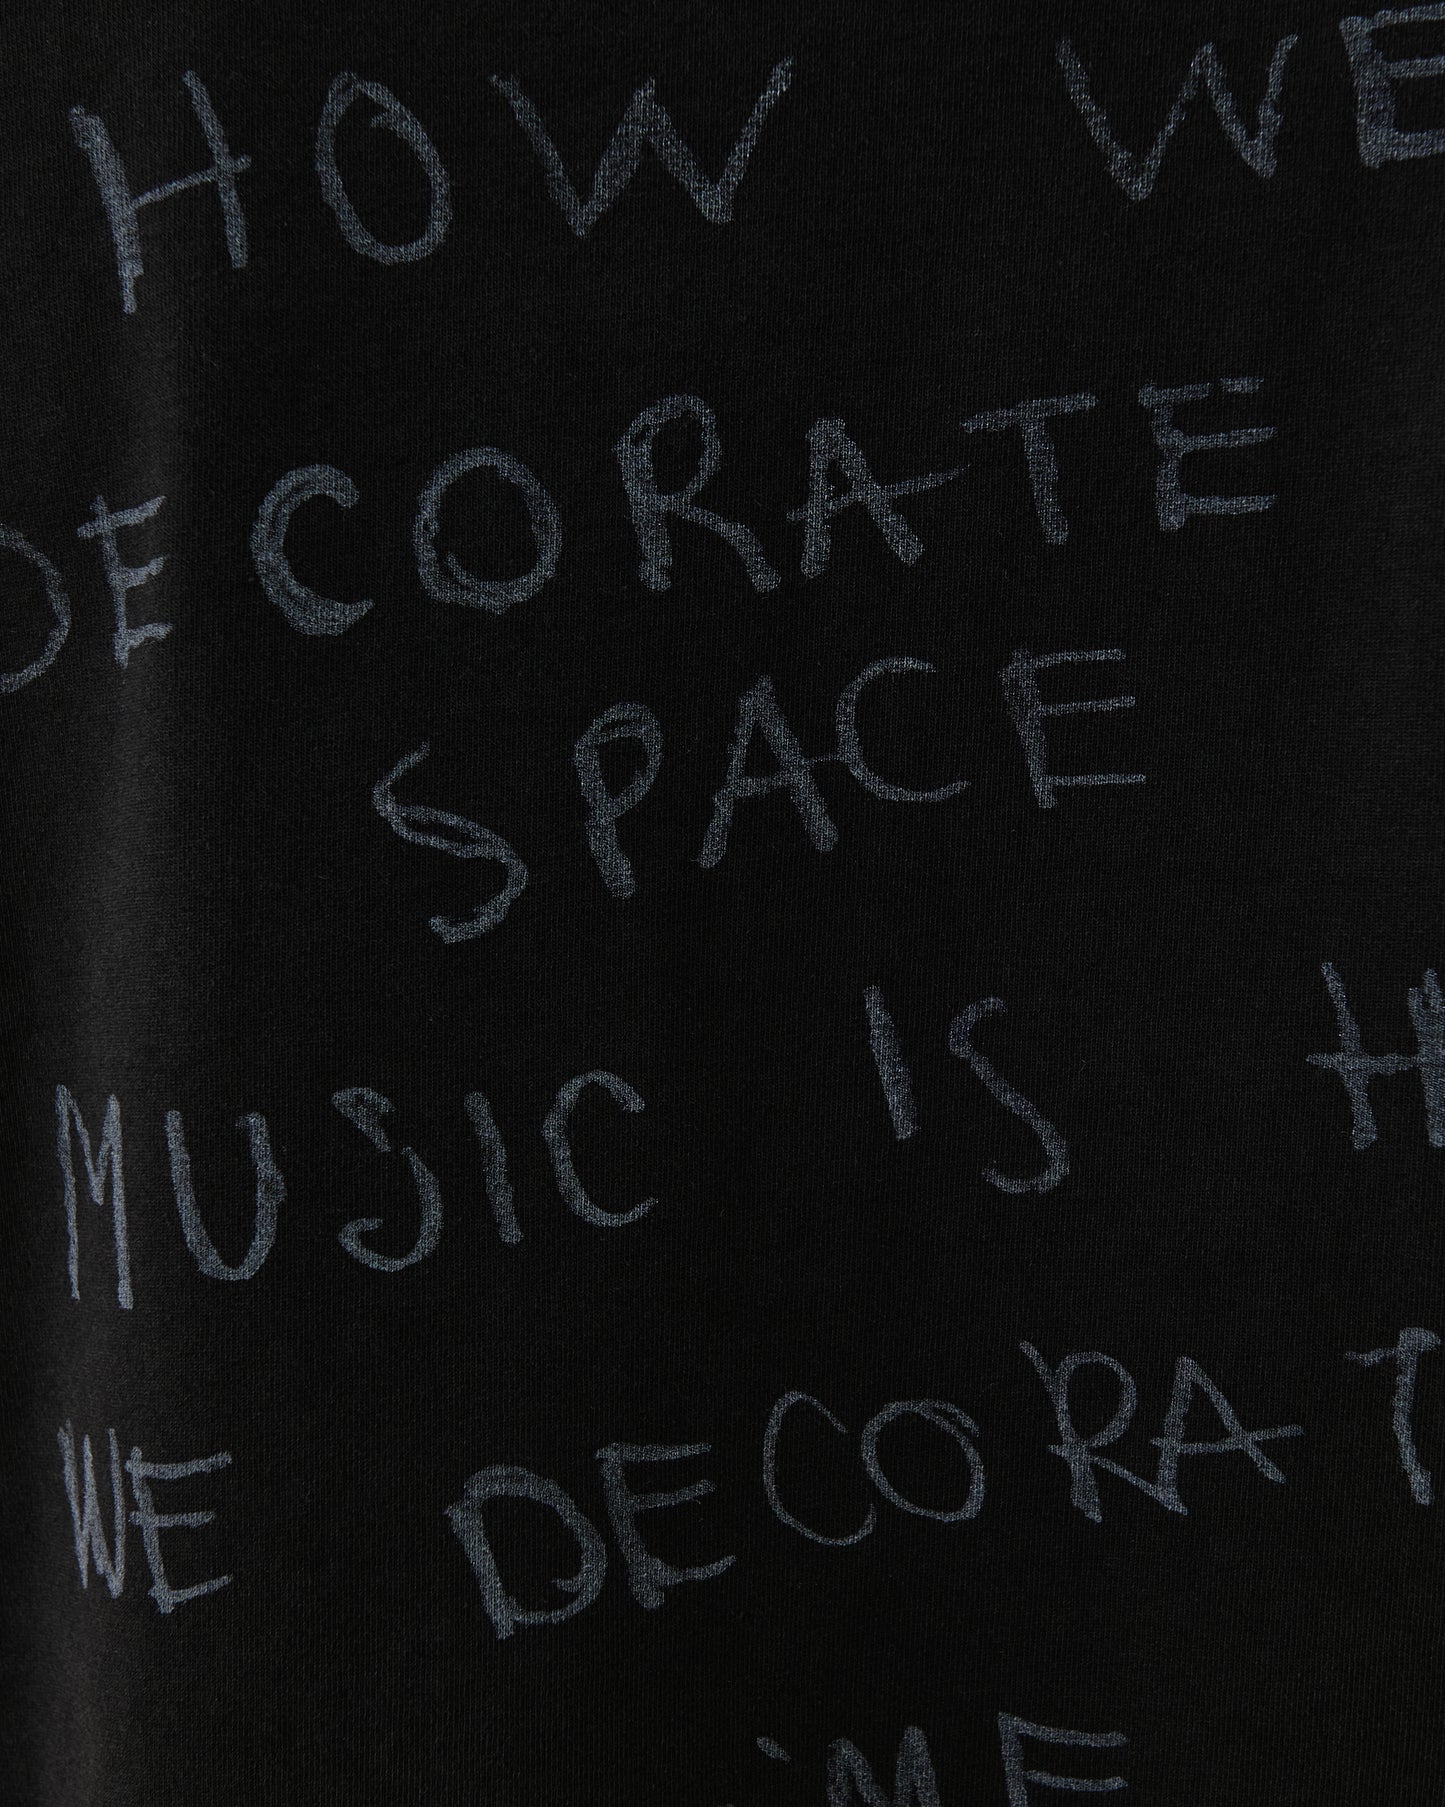 HOW WE
DECORATE
SPACE
MUSIC IS H
WE DECORAT
ME